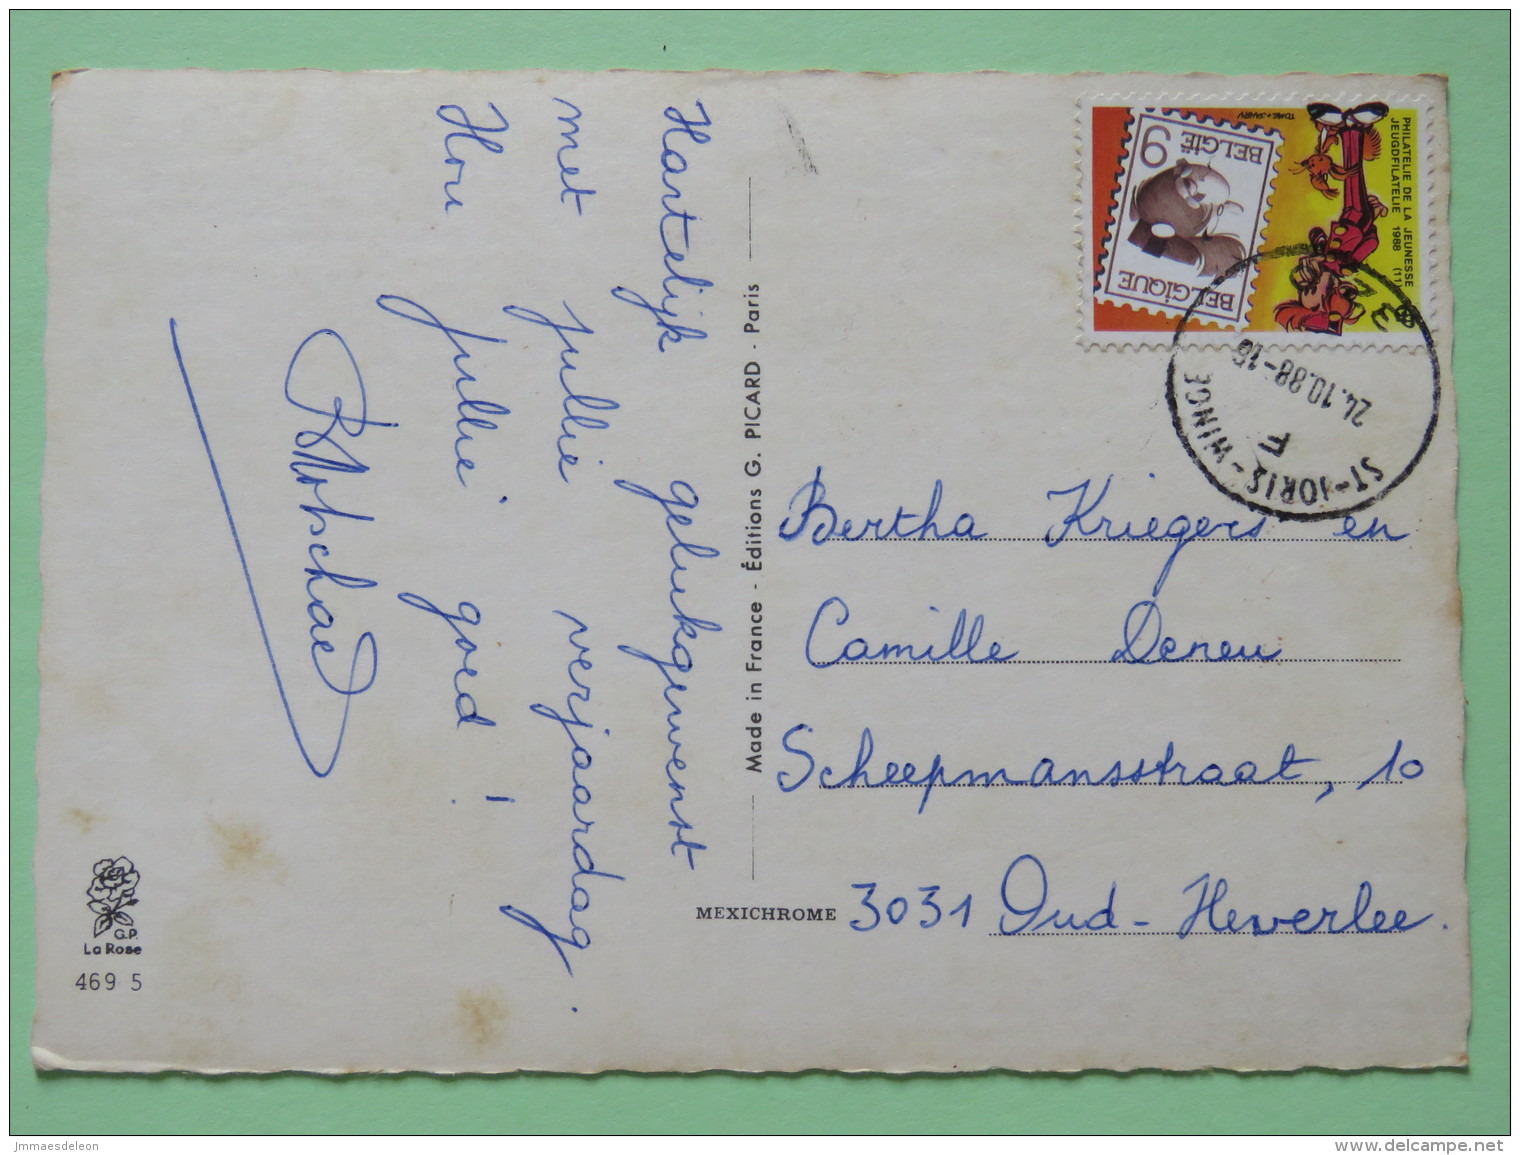 Hartelijk gelukgewenst
met jullie verjaardag.
Hou jullie goed!
Made in France - Éditions G. PICARD - Paris
MEXICHROME
G.P.
La Rose
469 5
PHILATELIE DE LA JEUNESSE
JEUGDFILATELIE 1988 (11)
BELGIË
9
BELGIQUE
ST-JORIS-WINGE
24.10.88-16
F
Bertha Kriegers en
Camille Deneu
Scheepmansstraat, 10
3031 Oud-Heverlee.
jmmaesdeleon
www.delcampe.net